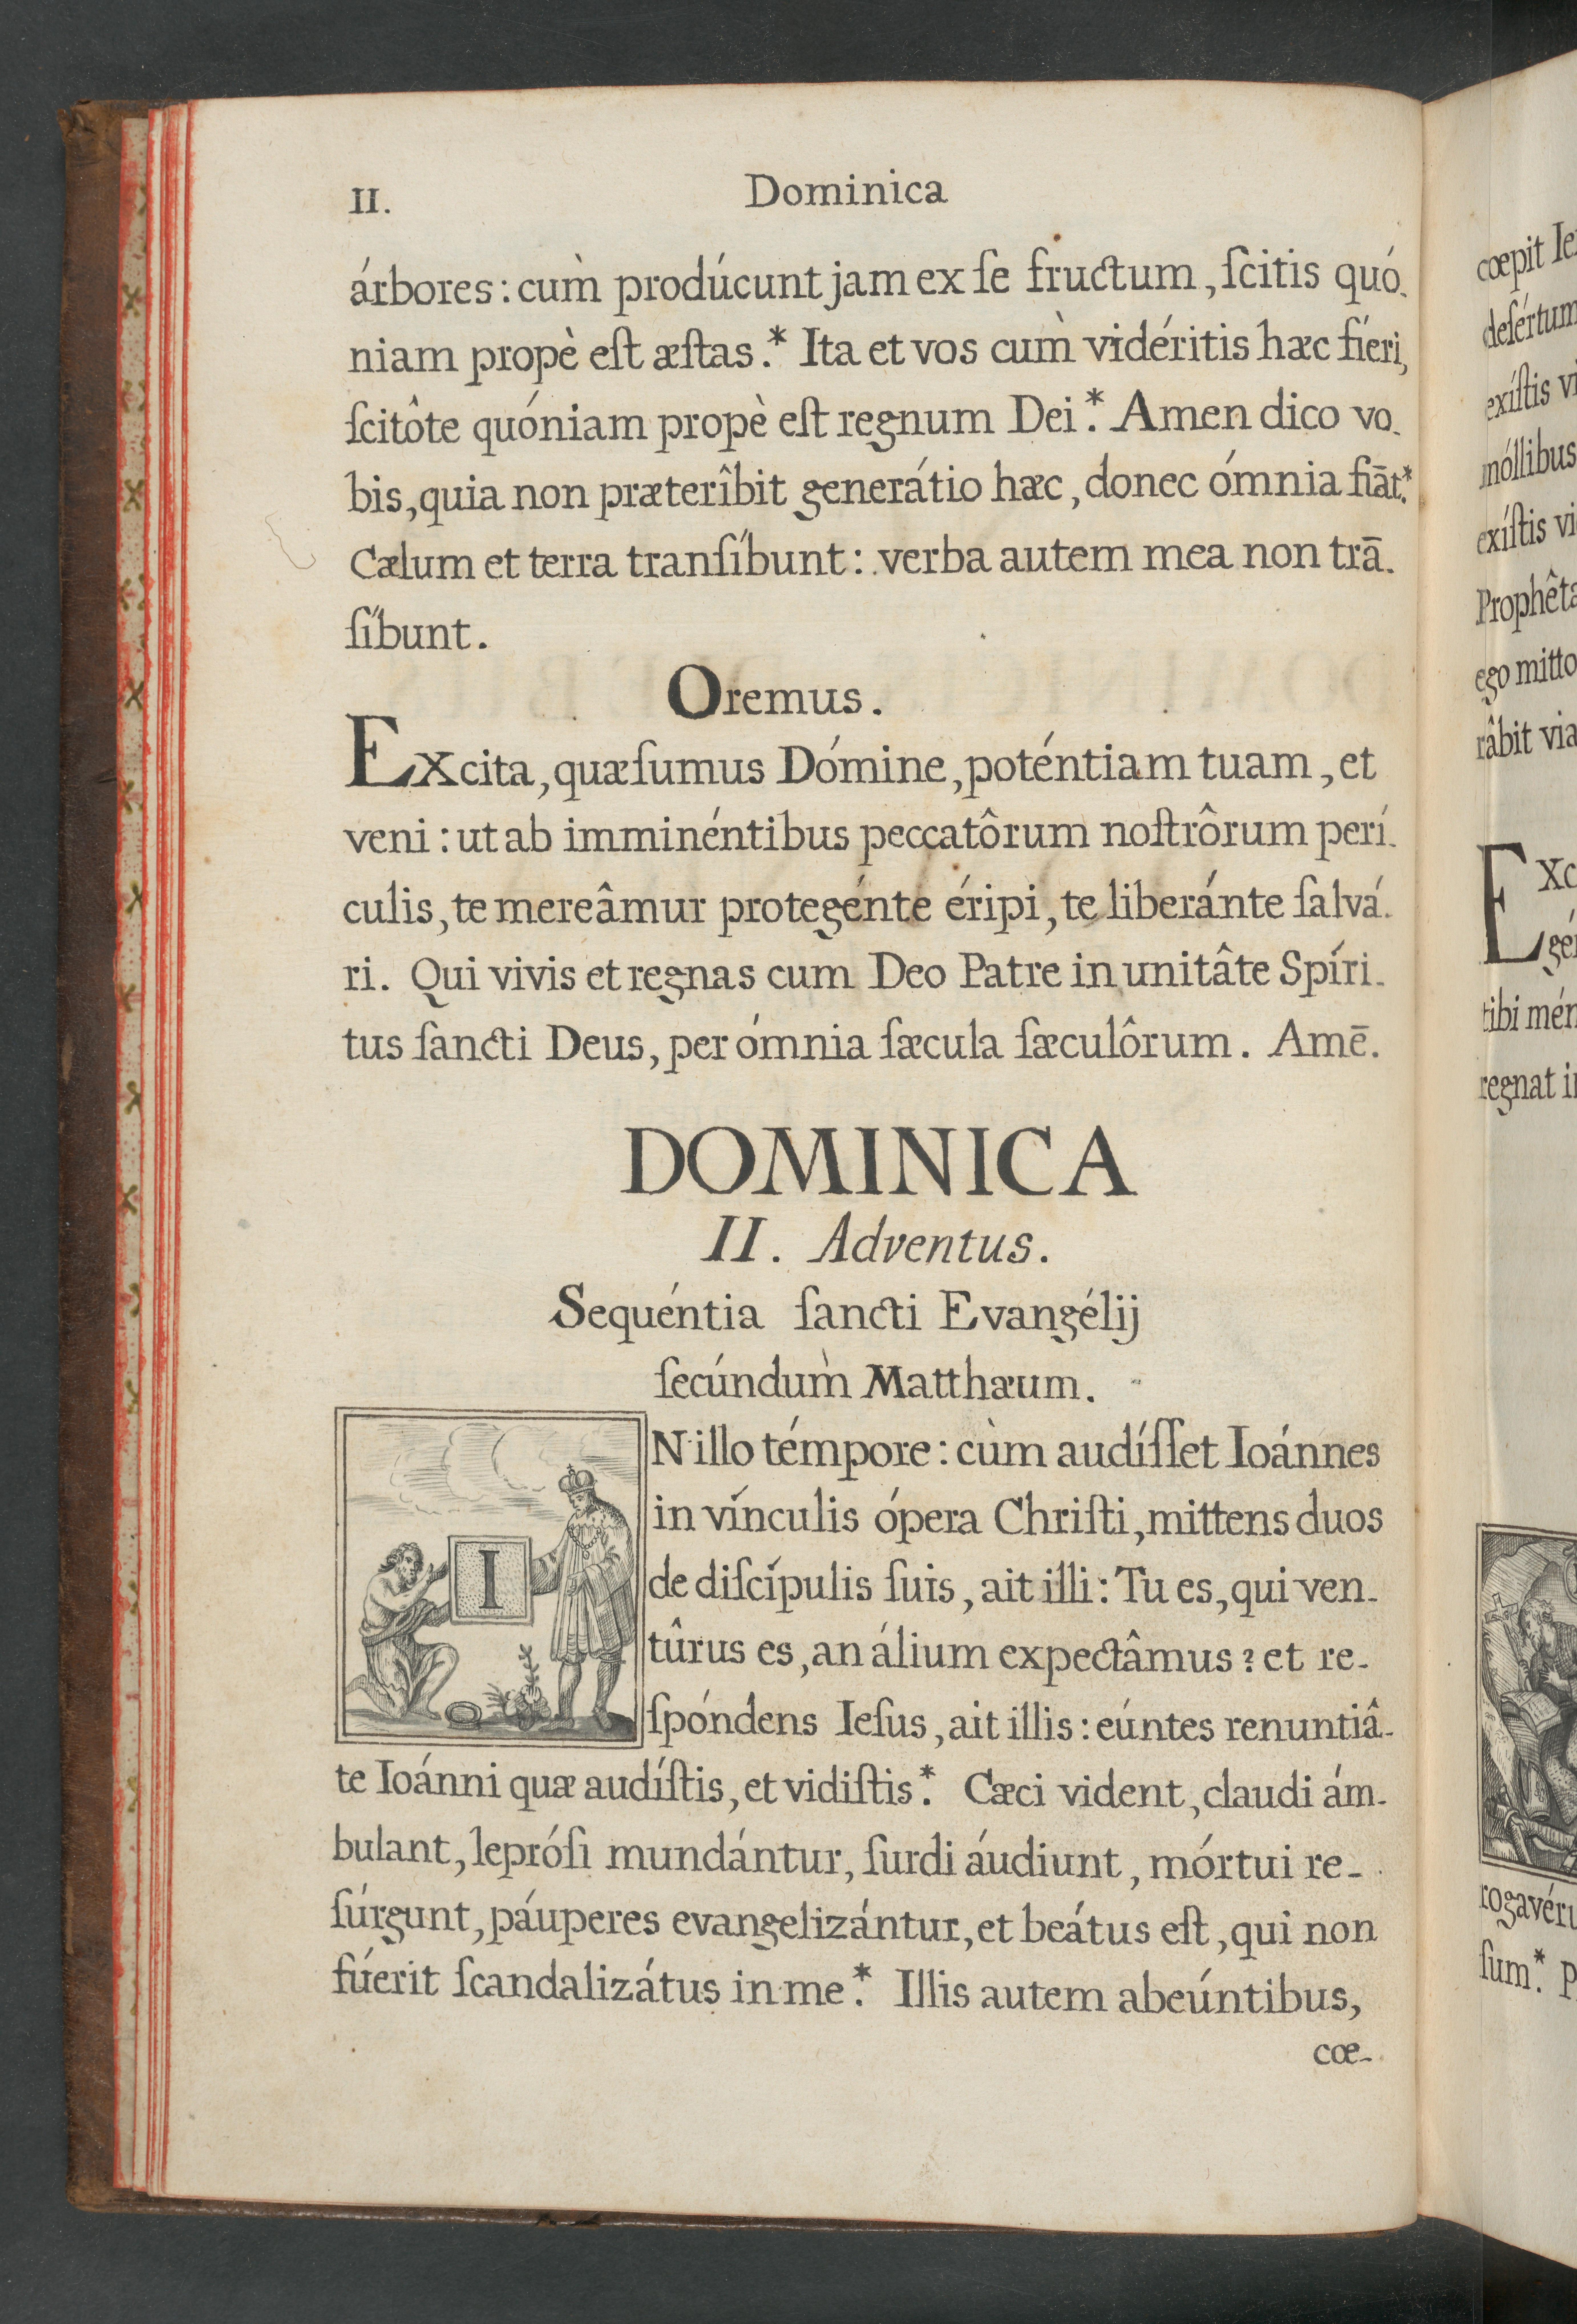 II. Dominica
árbores: cum̀ prodúcunt jam ex ſe fructum, ſcitis quó.
niam propè eſt æſtas.* Ita et vos cum̀ vidéritis hæc fíeri,
ſcitôte quóniam propè eſt regnum Dei.* Amen dico vo.
bis, quia non præterîbit generátio hæc, donec ómnia fiāt.*
Cælum et terra tranſíbunt: verba autem mea non trā.
ſíbunt.
Oremus.
EXcita, quæſumus Dómine, poténtiam tuam, et
veni: ut ab imminéntibus peccatôrum noſtrôrum perí.
culis, te mereâmur protegénte éripi, te liberánte ſalvá.
ri. Qui vivis et regnas cum Deo Patre in unitâte Spíri.
tus ſancti Deus, per ómnia ſæcula ſæculôrum. Amē.
DOMINICA
II. Adventus.
Sequéntia ſancti Evangélij
ſecúndum̀ Matthæum.
IN illo témpore: cùm audíſſet Ioánnes
in vínculis ópera Chriſti, mittens duos
de diſcípulis ſuis, ait illi: Tu es, qui ven-
tûrus es, an álium expectâmus? et re-
ſpóndens Ieſus, ait illis: eúntes renuntiâ-
te Ioánni quæ audíſtis, et vidiſtis.* Cæci vident, claudi ám-
bulant, lepróſi mundántur, ſurdi áudiunt, mórtui re-
ſúrgunt, páuperes evangelizántur, et beátus eſt, qui non
fúerit ſcandalizátus in me.* Illis autem abeúntibus,
cœ-
cœpit Ie
deſértum
exíſtis vi
móllibus
exíſtis vi
Prophêta
ego mitto
râbit via
EXc
gé
tibi mén
regnat i
rogavéru
ſum.* P